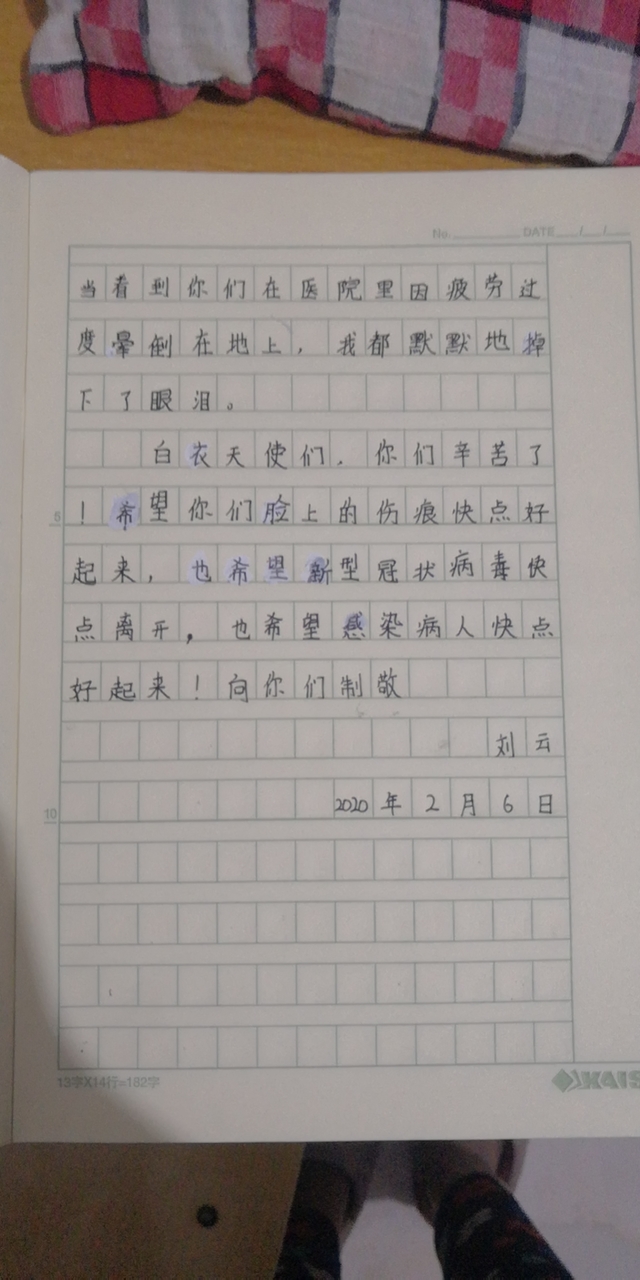 No. DATE / /
当看到你们在医院里因疲劳过
度晕倒在地上，我都默默地掉
下了眼泪。
白衣天使们，你们辛苦了
！希望你们脸上的伤痕快点好
5
起来，也希望新型冠状病毒快
点离开，也希望感染病人快点
好起来！向你们制敬
刘云
2020年2月6日
10
13字X14行=182字
KAIS